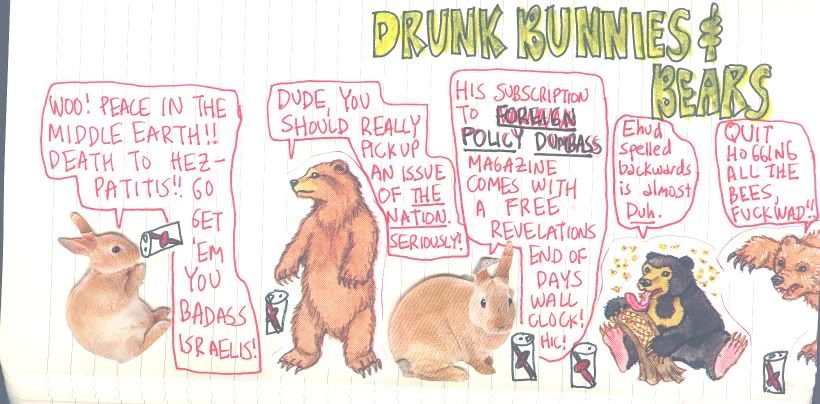 DRUNK BUNNIES &
BEARS
WOO! PEACE IN THE
MIDDLE EARTH!!
DEATH TO HEZ-
PATITIS!! GO
GET
'EM
YOU
BADASS
ISRAELIS!
DUDE, YOU
SHOULD REALLY
PICK UP
AN ISSUE
OF THE
NATION.
SERIOUSLY!
HIS SUBSCRIPTION
TO FOREIGN
POLICY DUMBASS
MAGAZINE
COMES WITH
A FREE
REVELATIONS
END OF
DAYS
WALL
CLOCK!
HIC!
Ehud
spelled
backwards
is almost
Duh.
QUIT
HOGGING
ALL THE
BEES,
FUCKWAD!!